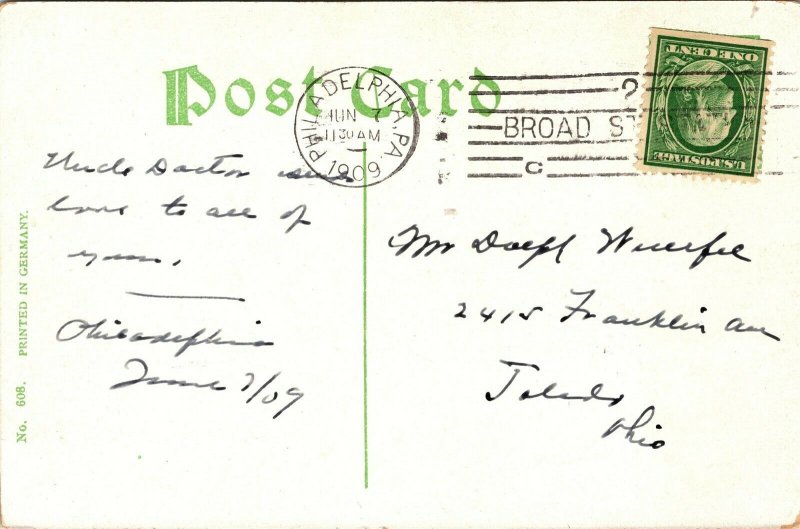 Post Card
PHILADELPHIA, PA.
JUN 7
11 30 AM
1909
2
BROAD ST
C
ONE CENT
U.S. POSTAGE
Uncle Doctor sends
love to all of
you.
Philadelphia
June 7/09
Mr
2415 Franklin Ave
Toledo
Ohio
No. 608. PRINTED IN GERMANY.